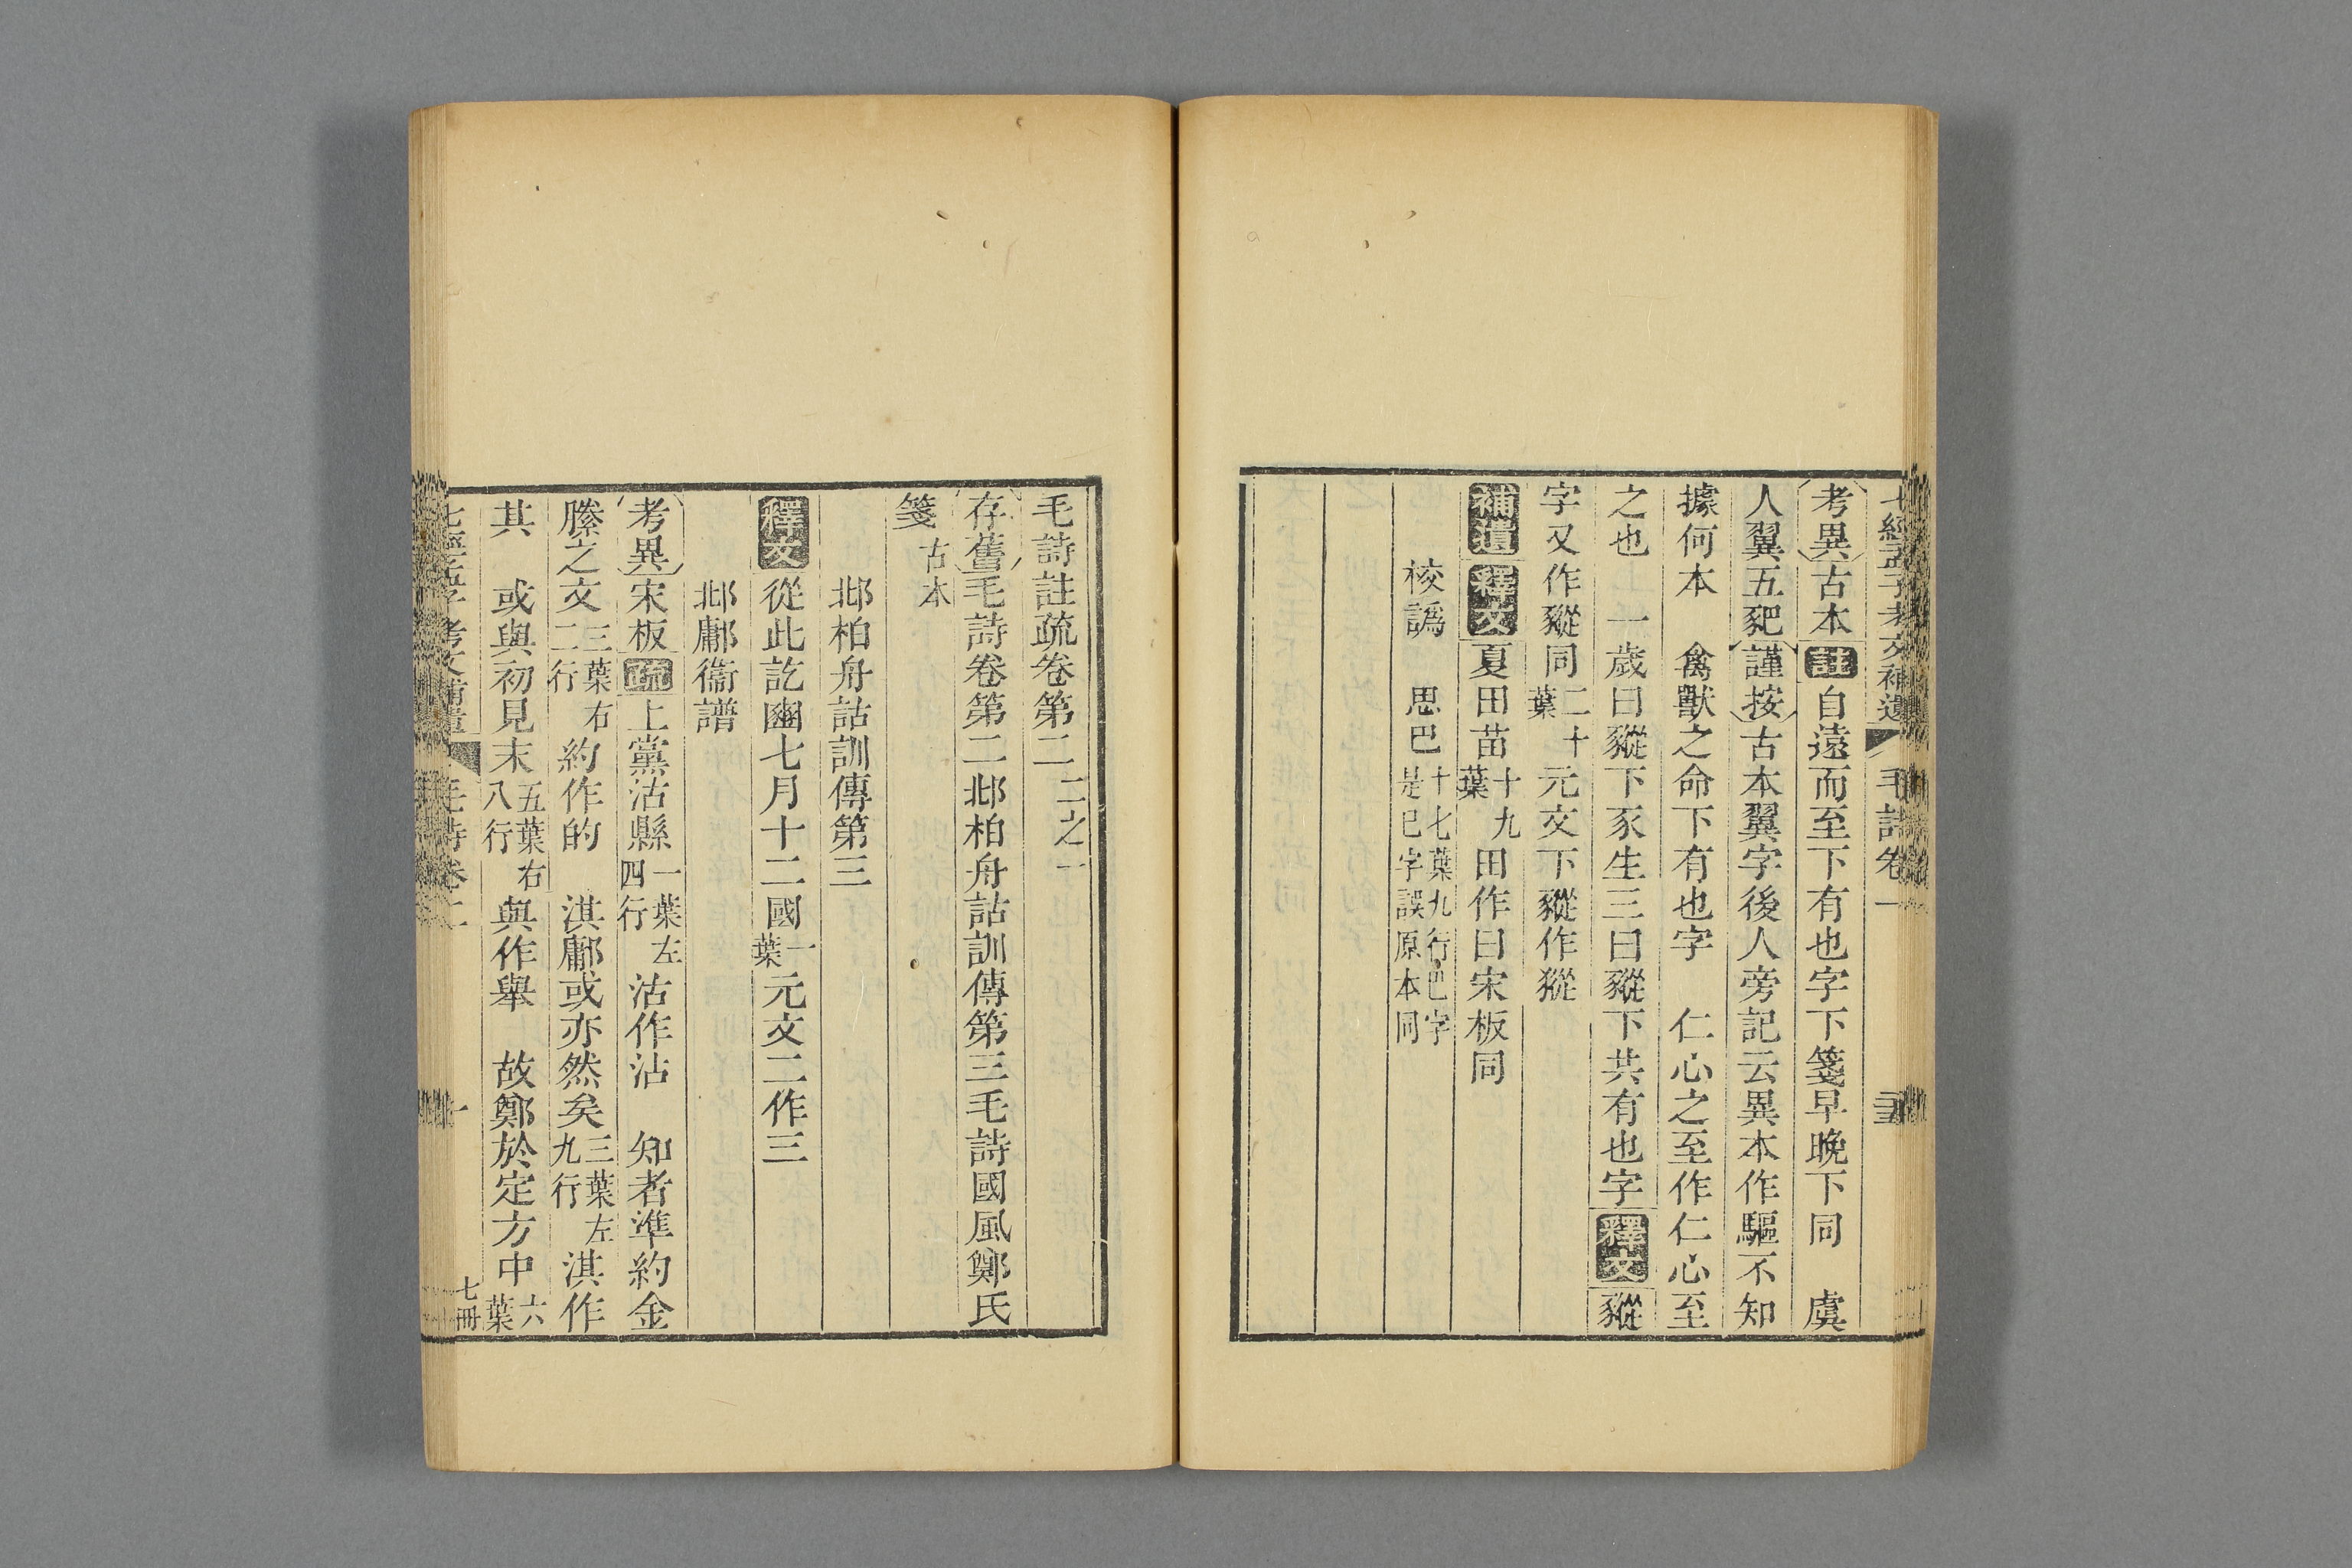 七經孟子考文補遺 毛詩卷一
考異古本註自遠而至下有也字下箋早晚下同 虞
人翼五豝謹按古本翼字後人旁記云異本作驅不知
據何本 禽獸之命下有也字 仁心之至作仁心至
之也 一歲曰豵下豕生三曰豵下共有也字釋文豵
字又作豵同二十葉元文下豵作猣
補遺釋文夏田苗十九葉田作曰宋板同
校譌 思巴十七葉九行巴字是巳字誤原本同
毛詩註疏卷第二二之一
存舊毛詩卷第二邶柏舟詁訓傳第三毛詩國風鄭氏
箋古本
邶柏舟詁訓傳第三
釋文從此訖豳七月十二國一葉元文二作三
邶鄘衞譜
考異宋板疏上黨沽縣一葉左四行沽作沾 知者準約金
縢之文三葉右二行約作的 淇鄘或亦然矣三葉左九行淇作
其 或與初見末五葉右八行與作舉 故鄭於定方中六葉
七經孟子考文補遺 毛詩卷二 一 七冊